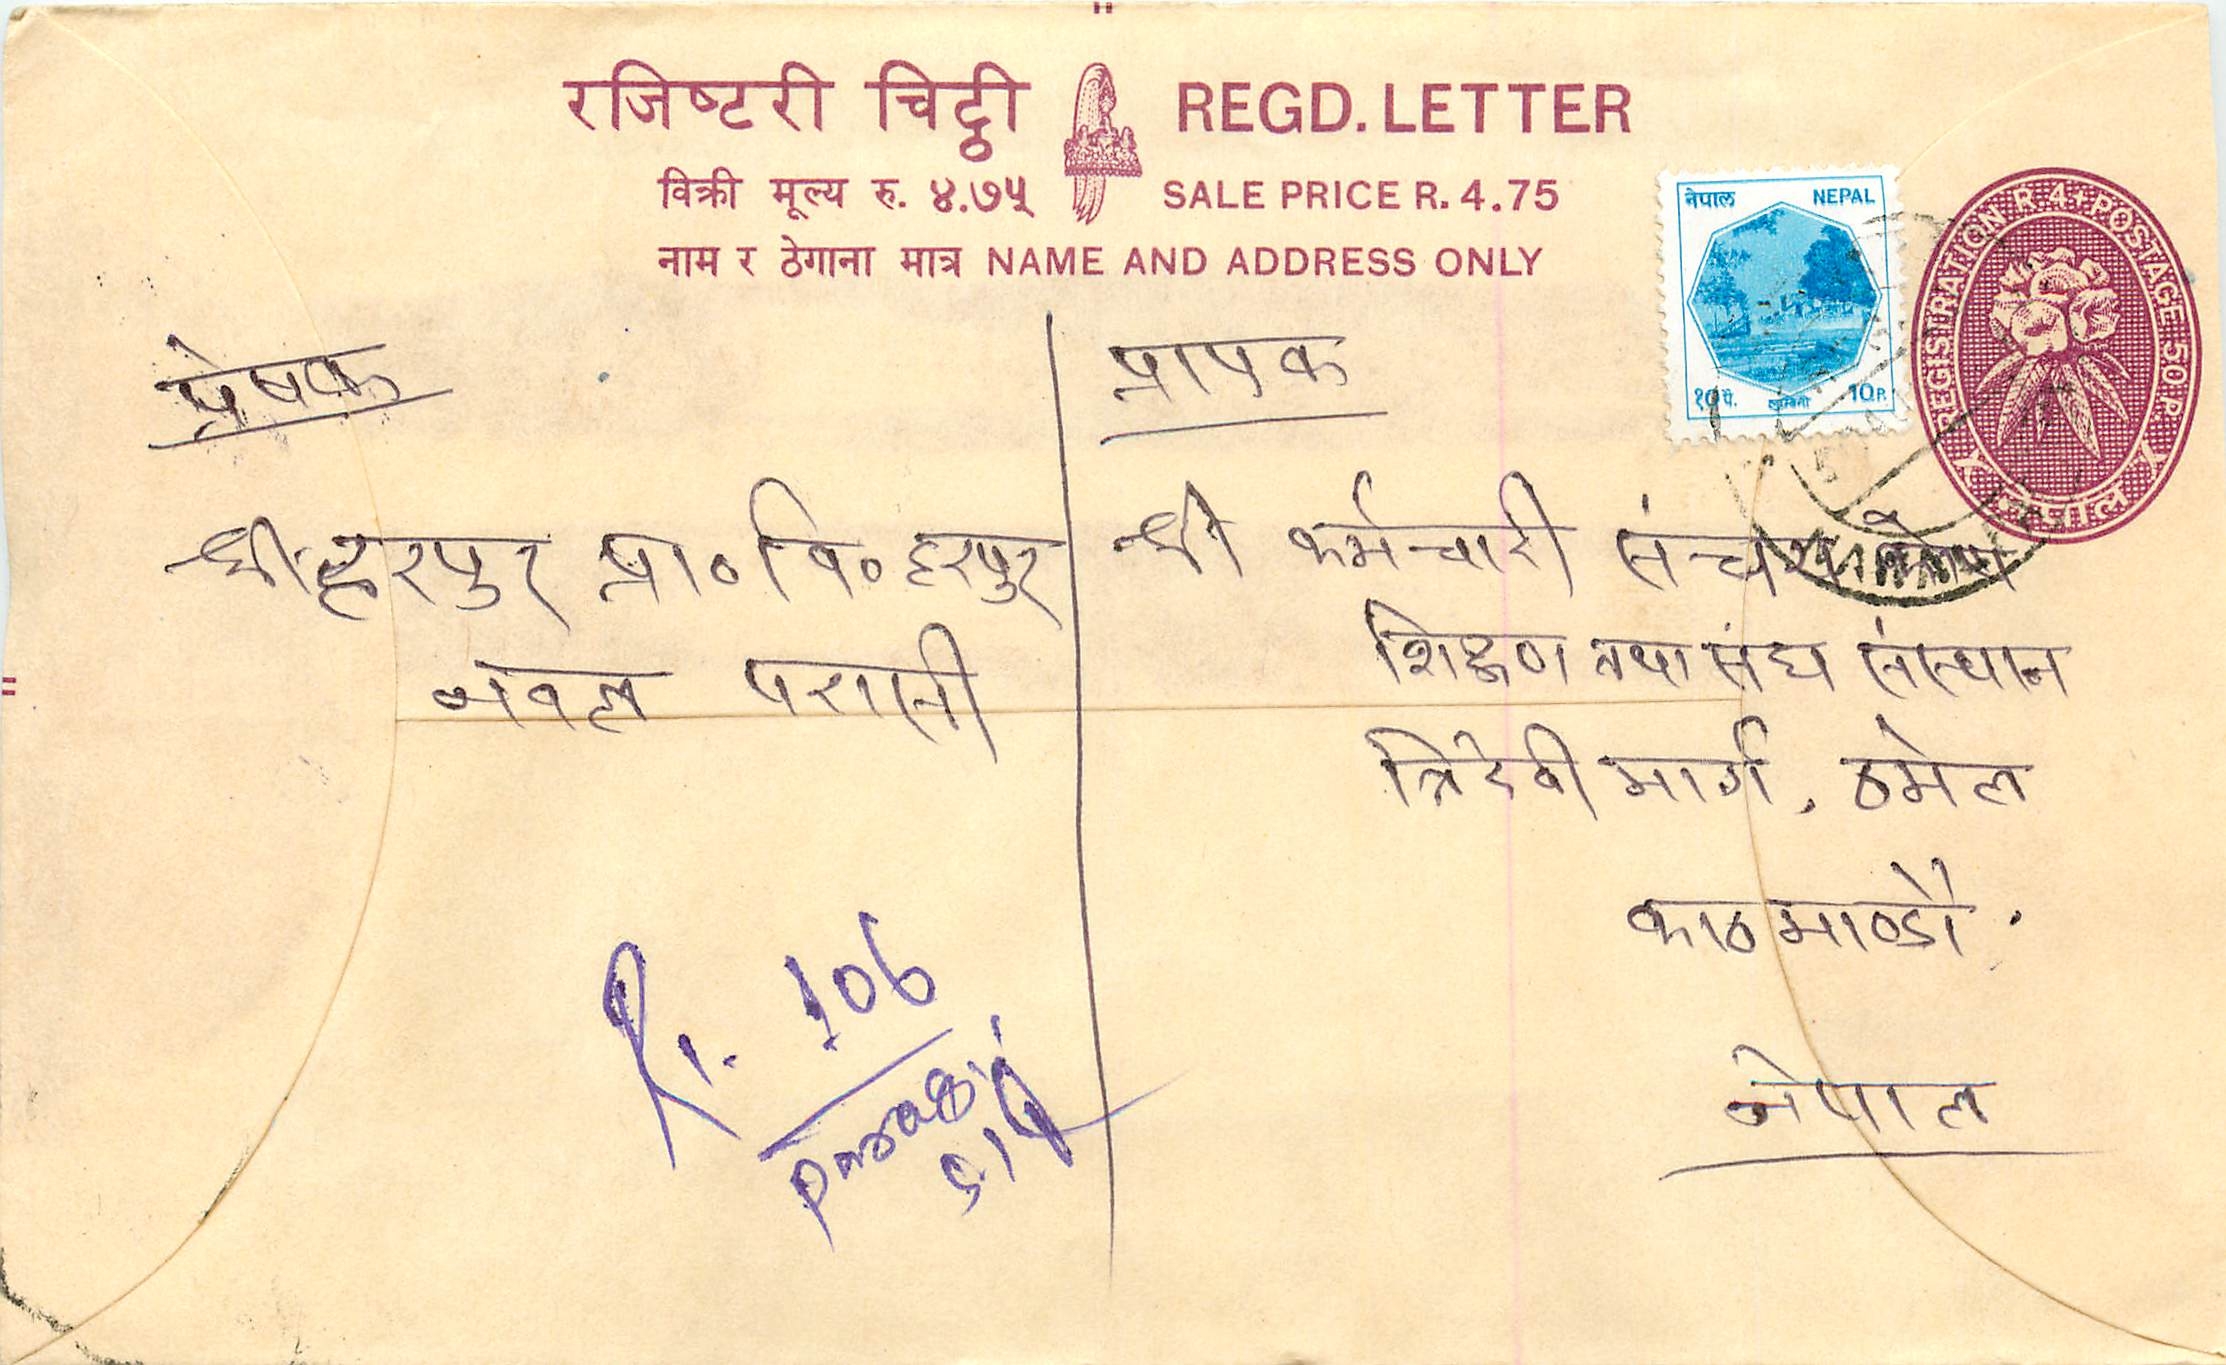 रजिष्टरी चिट्ठी REGD. LETTER
विक्री मूल्य रु. ४.७५ SALE PRICE R. 4.75
नाम र ठेगाना मात्र NAME AND ADDRESS ONLY
नेपाल NEPAL
१० पै. लुम्बिनी 10P.
REGISTRATION R.4+POSTAGE 50 P.
नेपाल
प्रेषक
श्री हरपुर प्रा०वि० हरपुर
नवल परासी
प्रापक
श्री कर्मचारी संचय कोष
शिक्षण तथा संघ संस्थान
त्रिदेवी मार्ग, ठमेल
काठमाण्डौ.
नेपाल
R. 106
Parasi